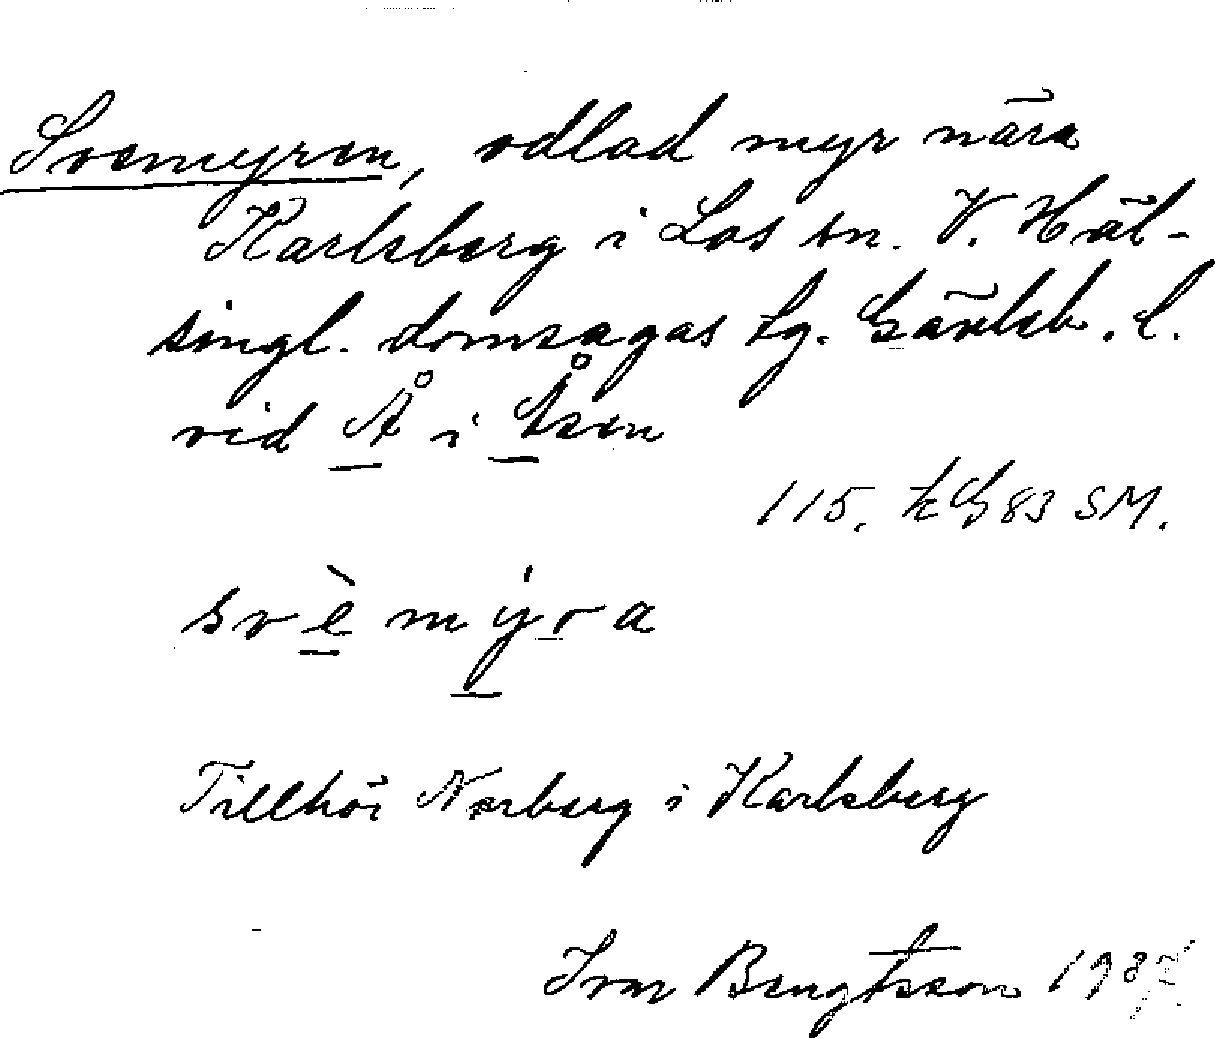 Svemyren, odlad myr nära
Karlsberg i Los sn. V. Häl-
singl. domsagas tg. Gävleb. l.
vid Å i Åsen
115. kG 83 SM.
svèmýra
Tillhör Norberg i Karlsberg
Ivar Bengtsson